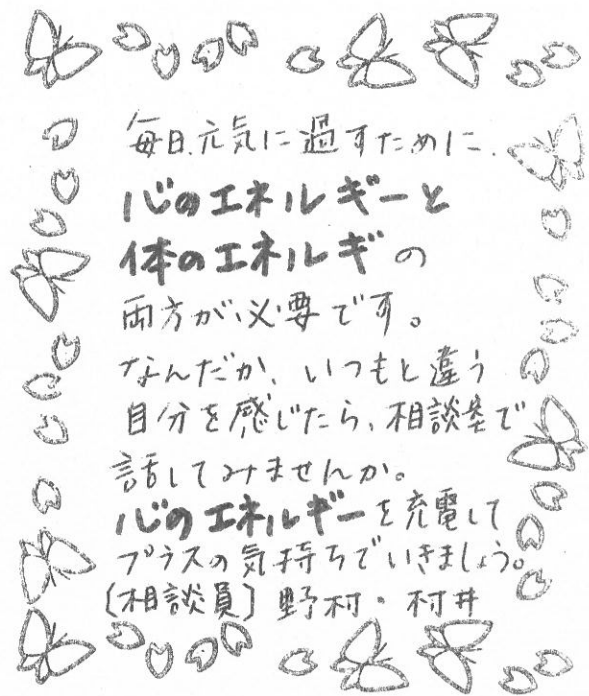 毎日、元気に過すために、
心のエネルギーと
体のエネルギの
両方が必要です。
なんだか、いつもと違う
自分を感じたら、相談室で
話してみませんか。
心のエネルギーを充電して
プラスの気持ちでいきましょう。
〔相談員〕野村・村井